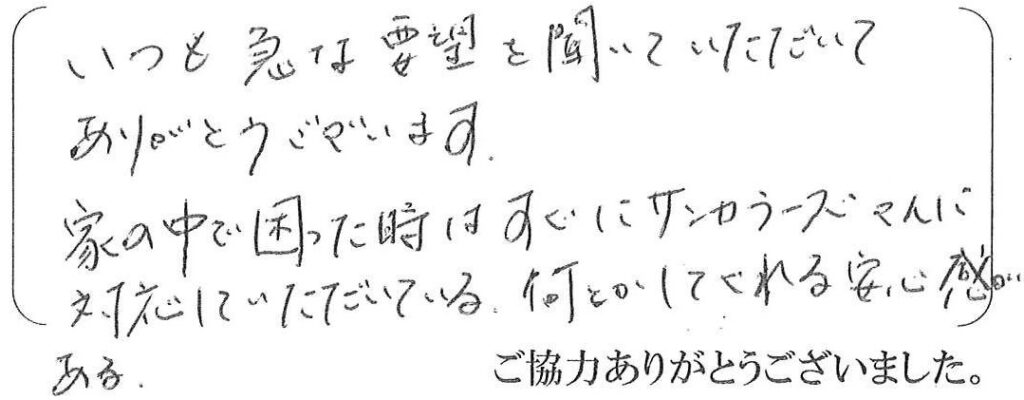 いつも急な要望を聞いていただいて
ありがとうございます.
家の中で困った時はすぐにサンカラーズさんに
対応していただいている. 何とかしてくれる安心感が
ある.
ご協力ありがとうございました。